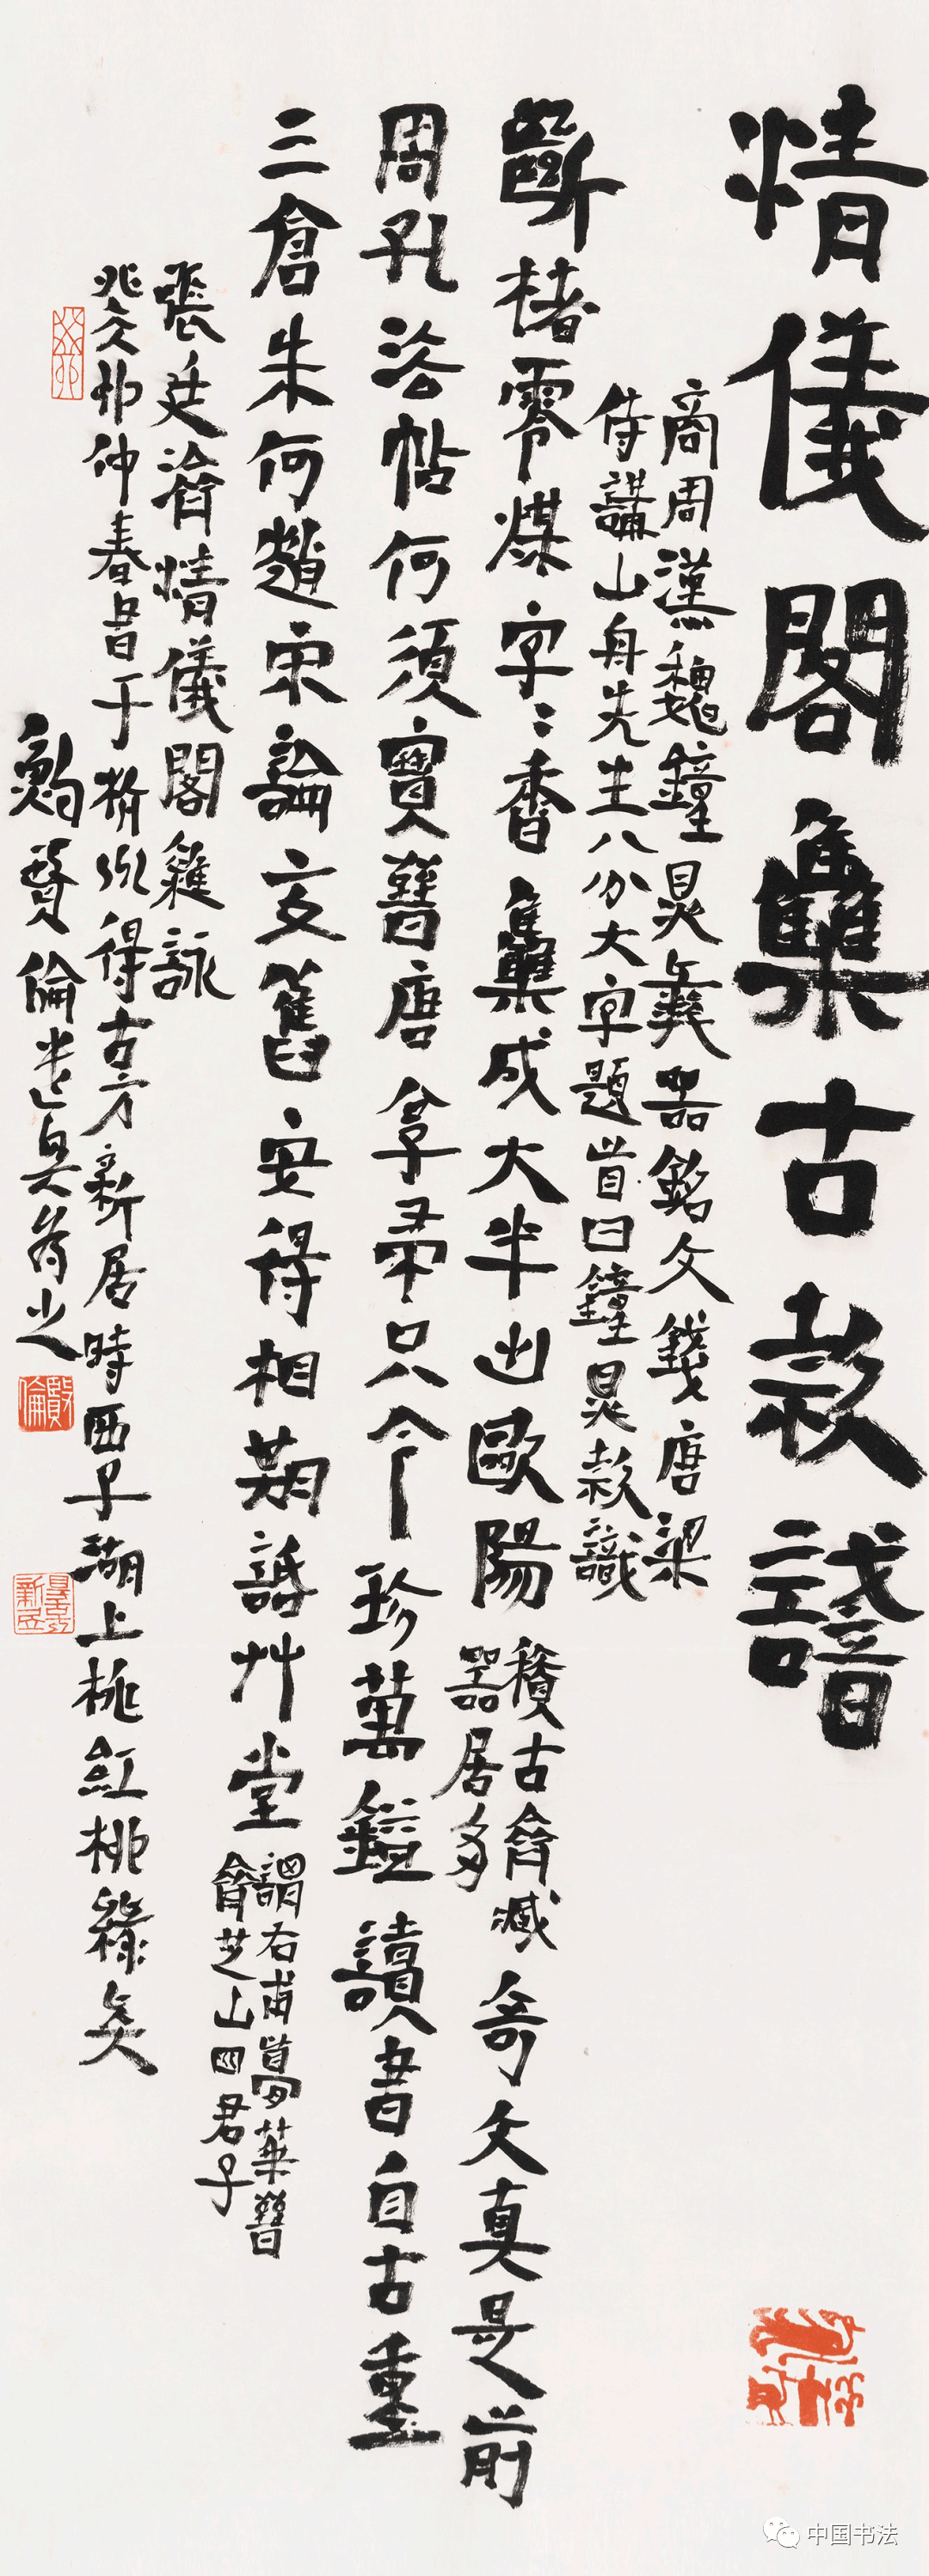 清儀閣雧古款識
商周漢魏鐘鼎彝器銘文錢唐梁
侍講山舟先生八分大字題首曰鐘鼎款識
斷楮零煤字〻香雧成大半出歐陽
積古齋臧
器居多
奇文真是前
周孔法帖何須寶晉唐享帚只今珍萬鎰讀書自古重
三倉朱何趙宋論交舊安得相期話艸堂
謂右甫夢華晉
齋芝山四君子
張廷濟清儀閣雜詠
癸卯仲春書于杭州得古方新居時西子湖上桃紅柳綠矣
鮑賢倫
賢倫
中国书法